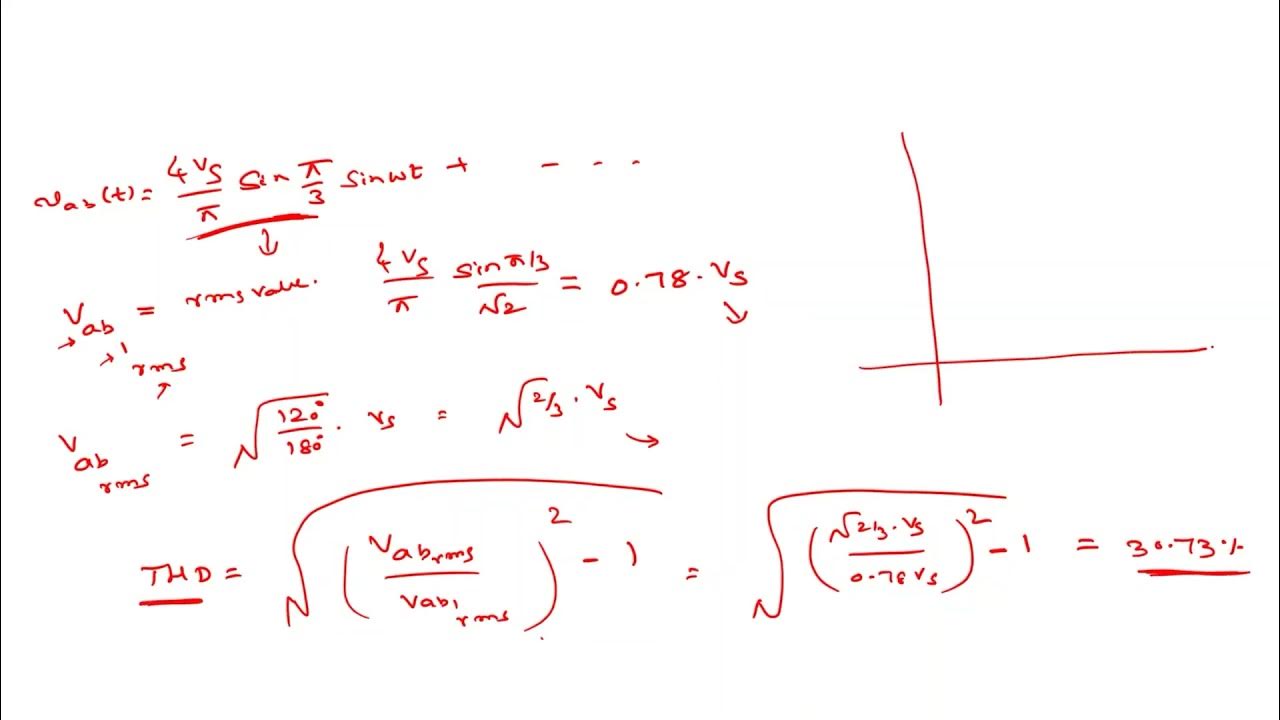 v_ab(t) = 4Vs/π sin π/3 sin ωt + - - -
V_ab1 rms = rms value. 4Vs/π sin π/3 / √2 = 0.78 . Vs
V_ab rms = √(120°/180°) . Vs = √(2/3) . Vs
THD = √((V_ab rms / V_ab1 rms)² - 1) = √((√(2/3) . Vs / 0.78 Vs)² - 1) = 30.73%